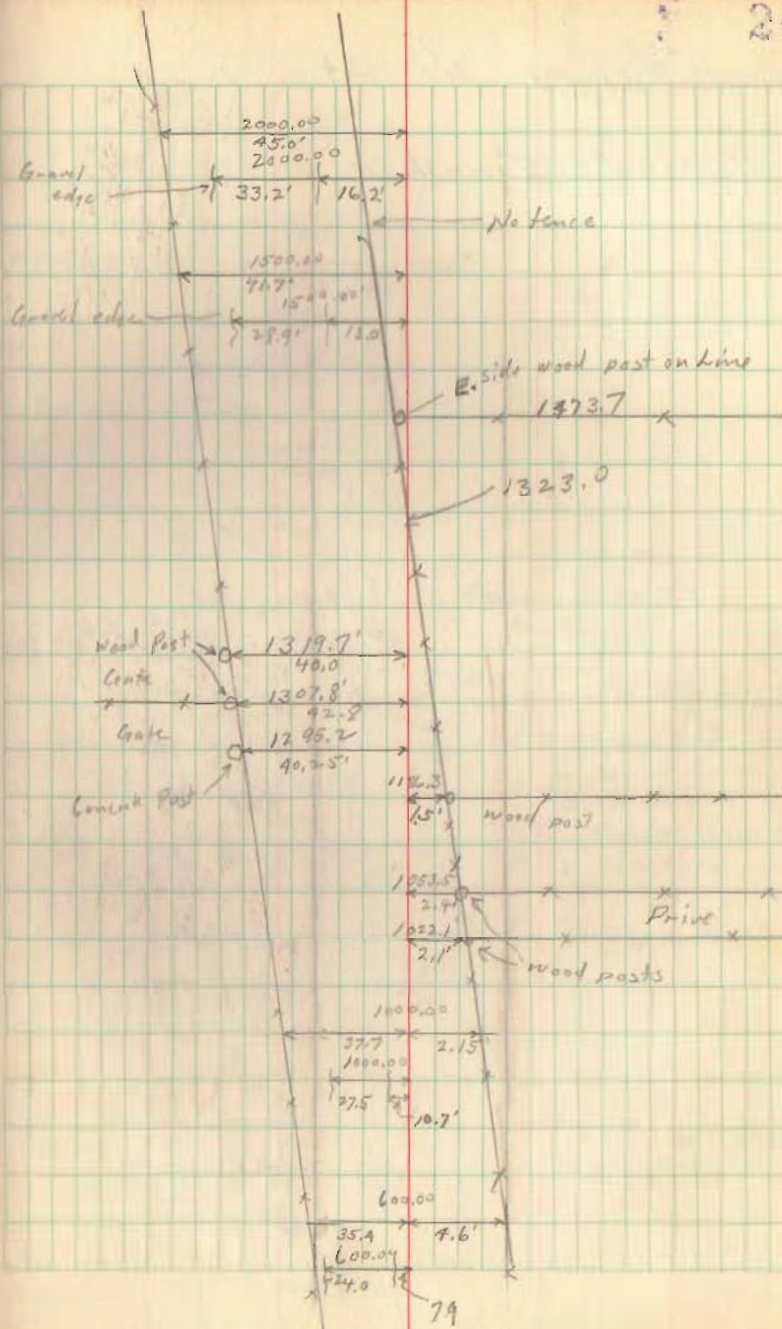 2
2000.00
45.0'
2000.00
Gravel
edge
33.2'
16.2'
No fence
1500.00
41.7'
1500.00'
Gravel edge
28.9'
13.0
E. side wood post on Line
1473.7
1323.0
Wood Post
1319.7'
40.0
Gate
1307.8'
42.8
Gate
1295.2
40.25'
Concrete Post
1186.3
1.5'
wood post
1053.5'
2.4'
Drive
1022.1'
2.1'
wood posts
1000.00
37.7
2.15'
1000.00
27.5
10.7'
600.00
35.4
4.6'
600.04
24.0
7.9